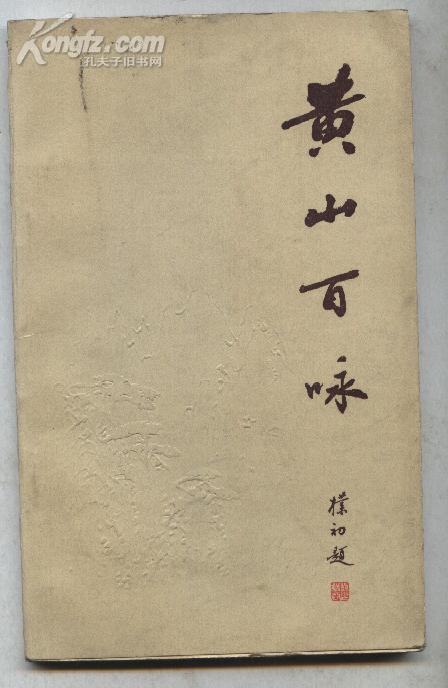 Kongfz.com
孔夫子旧书网
黄山百咏
樸初題